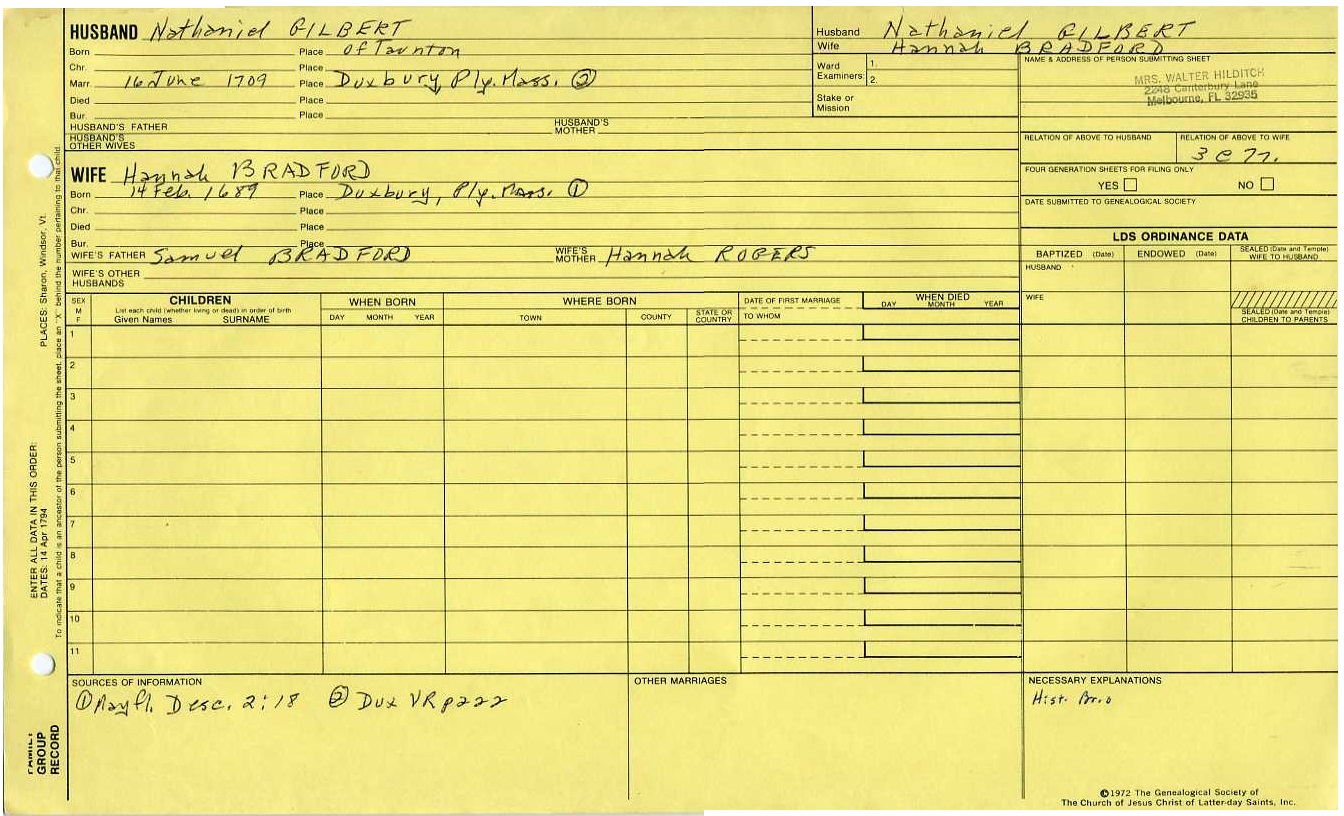 HUSBAND Nathaniel GILBERT
Born Place of Taunton
Chr. Place
Marr 16 June 1709 Place Duxbury, Ply. Mass. ②
Died Place
Bur. Place
HUSBAND'S FATHER HUSBAND'S MOTHER
HUSBAND'S OTHER WIVES
WIFE Hannah BRADFORD
Born 14 Feb. 1689 Place Duxbury, Ply. Mass. ①
Chr. Place
Died Place
Bur. Place
WIFE'S FATHER Samuel BRADFORD WIFE'S MOTHER Hannah ROGERS
WIFE'S OTHER HUSBANDS
Husband Nathaniel GILBERT
Wife Hannah BRADFORD
Ward Examiners: 1.
2.
Stake or Mission
NAME & ADDRESS OF PERSON SUBMITTING SHEET
MRS. WALTER HILDITCH
2248 Canterbury Lane
Melbourne, FL 32935
RELATION OF ABOVE TO HUSBAND RELATION OF ABOVE TO WIFE
3 C 7r.
FOUR GENERATION SHEETS FOR FILING ONLY
YES NO
DATE SUBMITTED TO GENEALOGICAL SOCIETY
LDS ORDINANCE DATA
BAPTIZED (Date) ENDOWED (Date) SEALED (Date and Temple) WIFE TO HUSBAND
HUSBAND
WIFE
SEALED (Date and Temple) CHILDREN TO PARENTS
SEX M F CHILDREN WHEN BORN WHERE BORN DATE OF FIRST MARRIAGE WHEN DIED
List each child (whether living or dead) in order of birth
Given Names SURNAME DAY MONTH YEAR TOWN COUNTY STATE OR COUNTRY TO WHOM DAY MONTH YEAR
1
2
3
4
5
6
7
8
9
10
11
SOURCES OF INFORMATION OTHER MARRIAGES NECESSARY EXPLANATIONS
① Mayfl. Desc. 2:18 ② Dux VR p222
Hist. Bro
©1972 The Genealogical Society of
The Church of Jesus Christ of Latter-day Saints, Inc.
FAMILY GROUP RECORD
ENTER ALL DATA IN THIS ORDER:
DATES: 14 Apr 1794
PLACES: Sharon, Windsor, Vt.
To indicate that a child is an ancestor of the person submitting the sheet, place an "X" behind the number pertaining to that child.